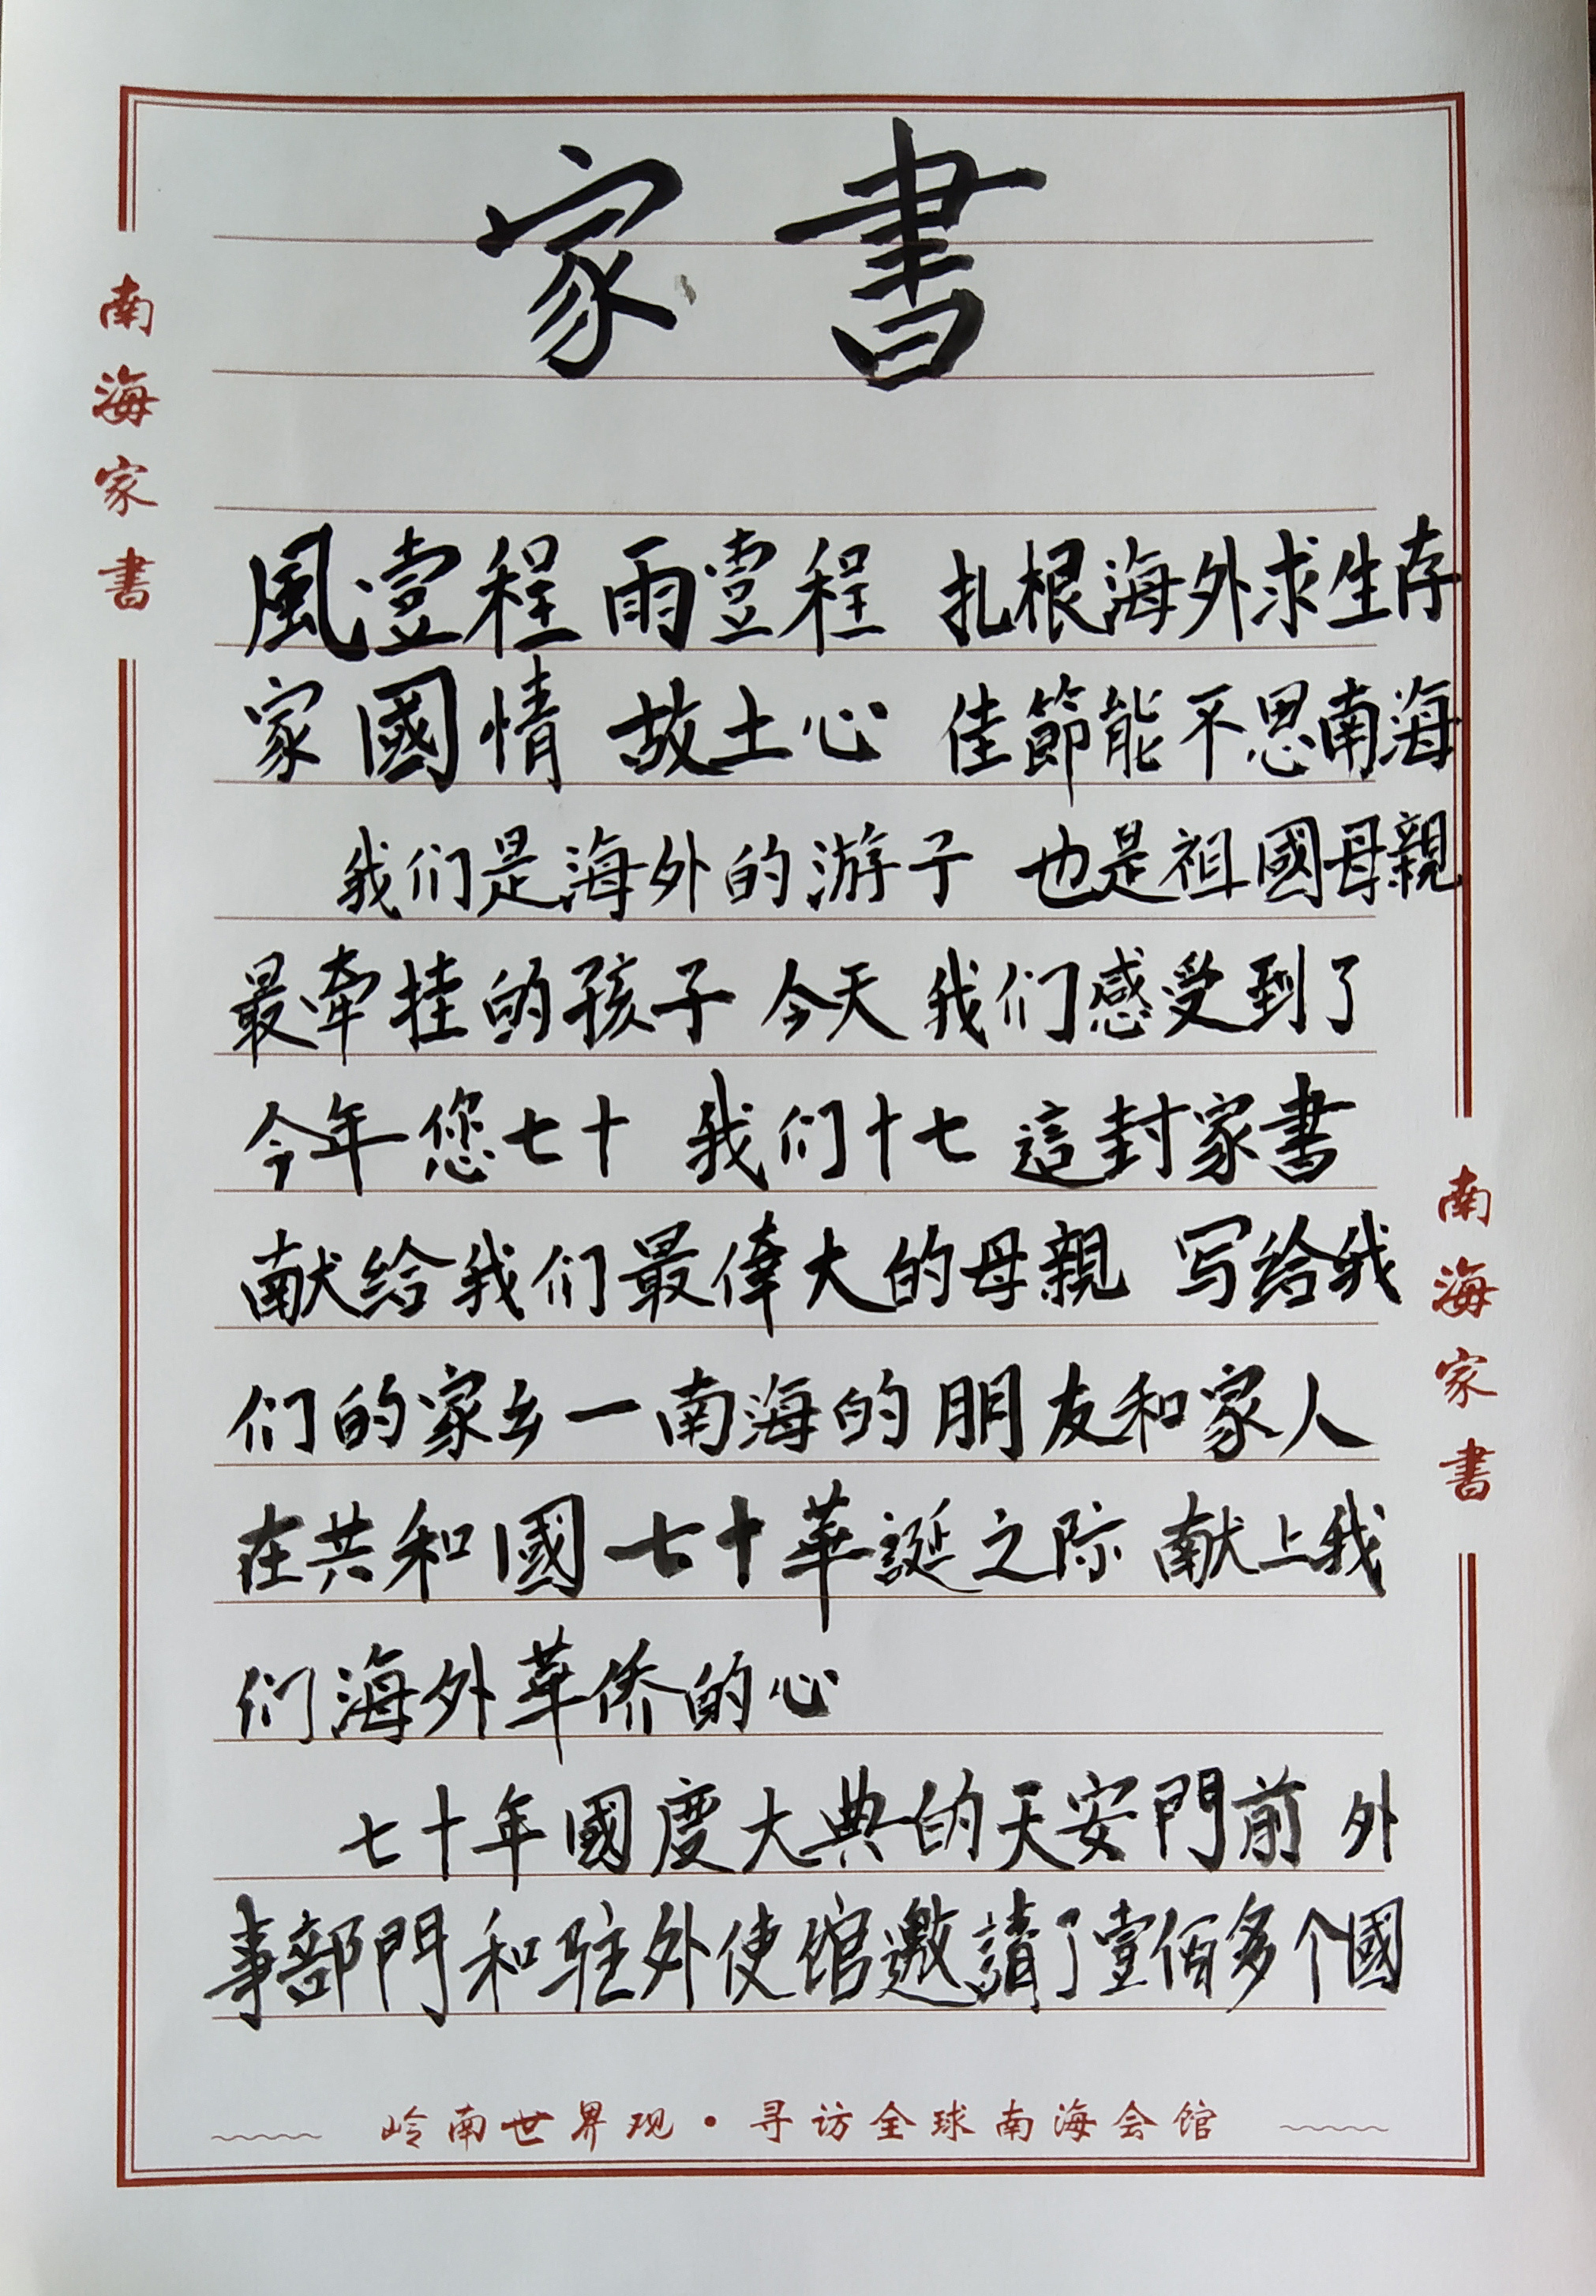 家書
南海家書
風壹程 雨壹程 扎根海外求生存
家國情 故土心 佳節能不思南海
我们是海外的游子 也是祖國母親
最牵挂的孩子 今天 我们感受到了
今年您七十 我们十七 這封家書
献给我们最偉大的母親 写给我
们的家乡一南海的朋友和家人
在共和國七十華誕之际 献上我
们海外華侨的心
七十年國慶大典的天安門前 外
事部門和駐外使馆邀請了壹佰多个國
南海家書
岭南世界观·寻访全球南海会馆